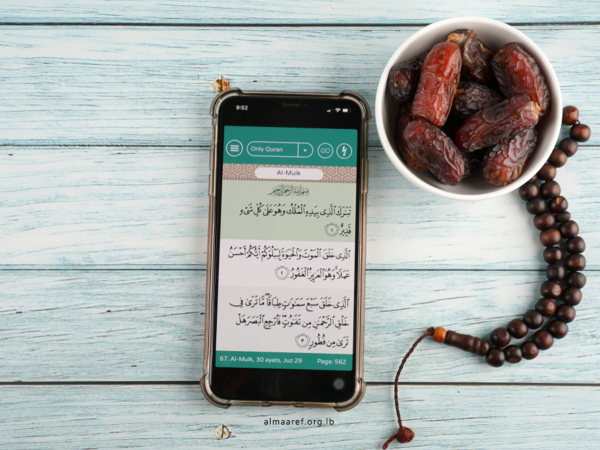 9:52
Only Quran
GO
Al-Mulk
بِسْمِ اللَّهِ الرَّحْمَٰنِ الرَّحِيمِ
تَبَٰرَكَ الَّذِى بِيَدِهِ الْمُلْكُ وَهُوَ عَلَىٰ كُلِّ شَىْءٍ
قَدِيرٌ ١
الَّذِى خَلَقَ الْمَوْتَ وَالْحَيَوٰةَ لِيَبْلُوَكُمْ أَيُّكُمْ أَحْسَنُ
عَمَلًا وَهُوَ الْعَزِيزُ الْغَفُورُ ٢
الَّذِى خَلَقَ سَبْعَ سَمَٰوَٰتٍ طِبَاقًا مَّا تَرَىٰ فِى
خَلْقِ الرَّحْمَٰنِ مِن تَفَٰوُتٍ فَارْجِعِ الْبَصَرَ هَلْ
تَرَىٰ مِن فُطُورٍ ٣
67. Al-Mulk, 30 ayats, Juz 29 Page: 562
almaaref.org.lb